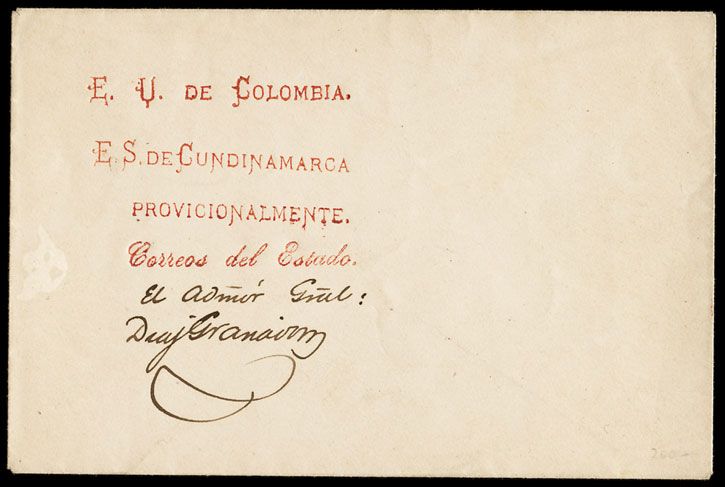 E. U. DE COLOMBIA.
E. S. DE CUNDINAMARCA
PROVICIONALMENTE.
Correos del Estado.
El Admōr Gral:
Diaz Granados